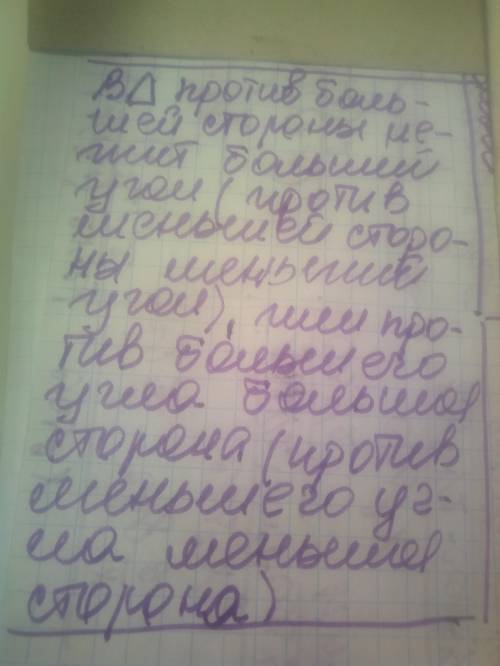 В△ против боль-
шей стороны ле-
жит больший
угол (против
меньшей сторо-
ны меньший
угол), или про-
тив большего
угла большая
сторона (против
меньшего уг-
ла меньшая
сторона)